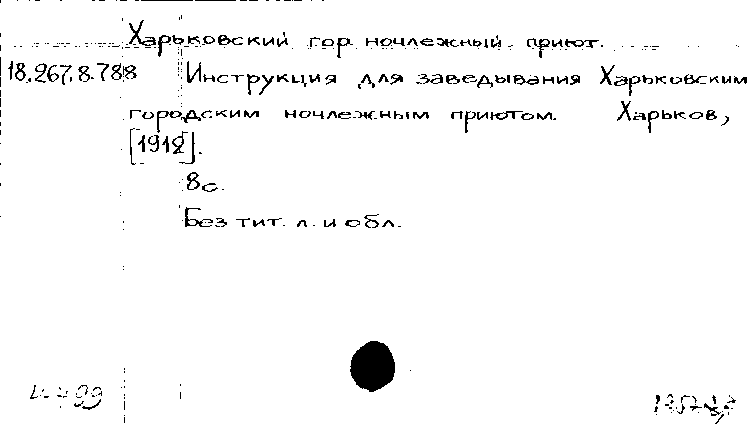 Харьковский гор. ночлежный приют.
18.267.8.788 Инструкция для заведывания Харьковским
городским ночлежным приютом. Харьков,
[1912].
8с.
Без тит. л. и обл.